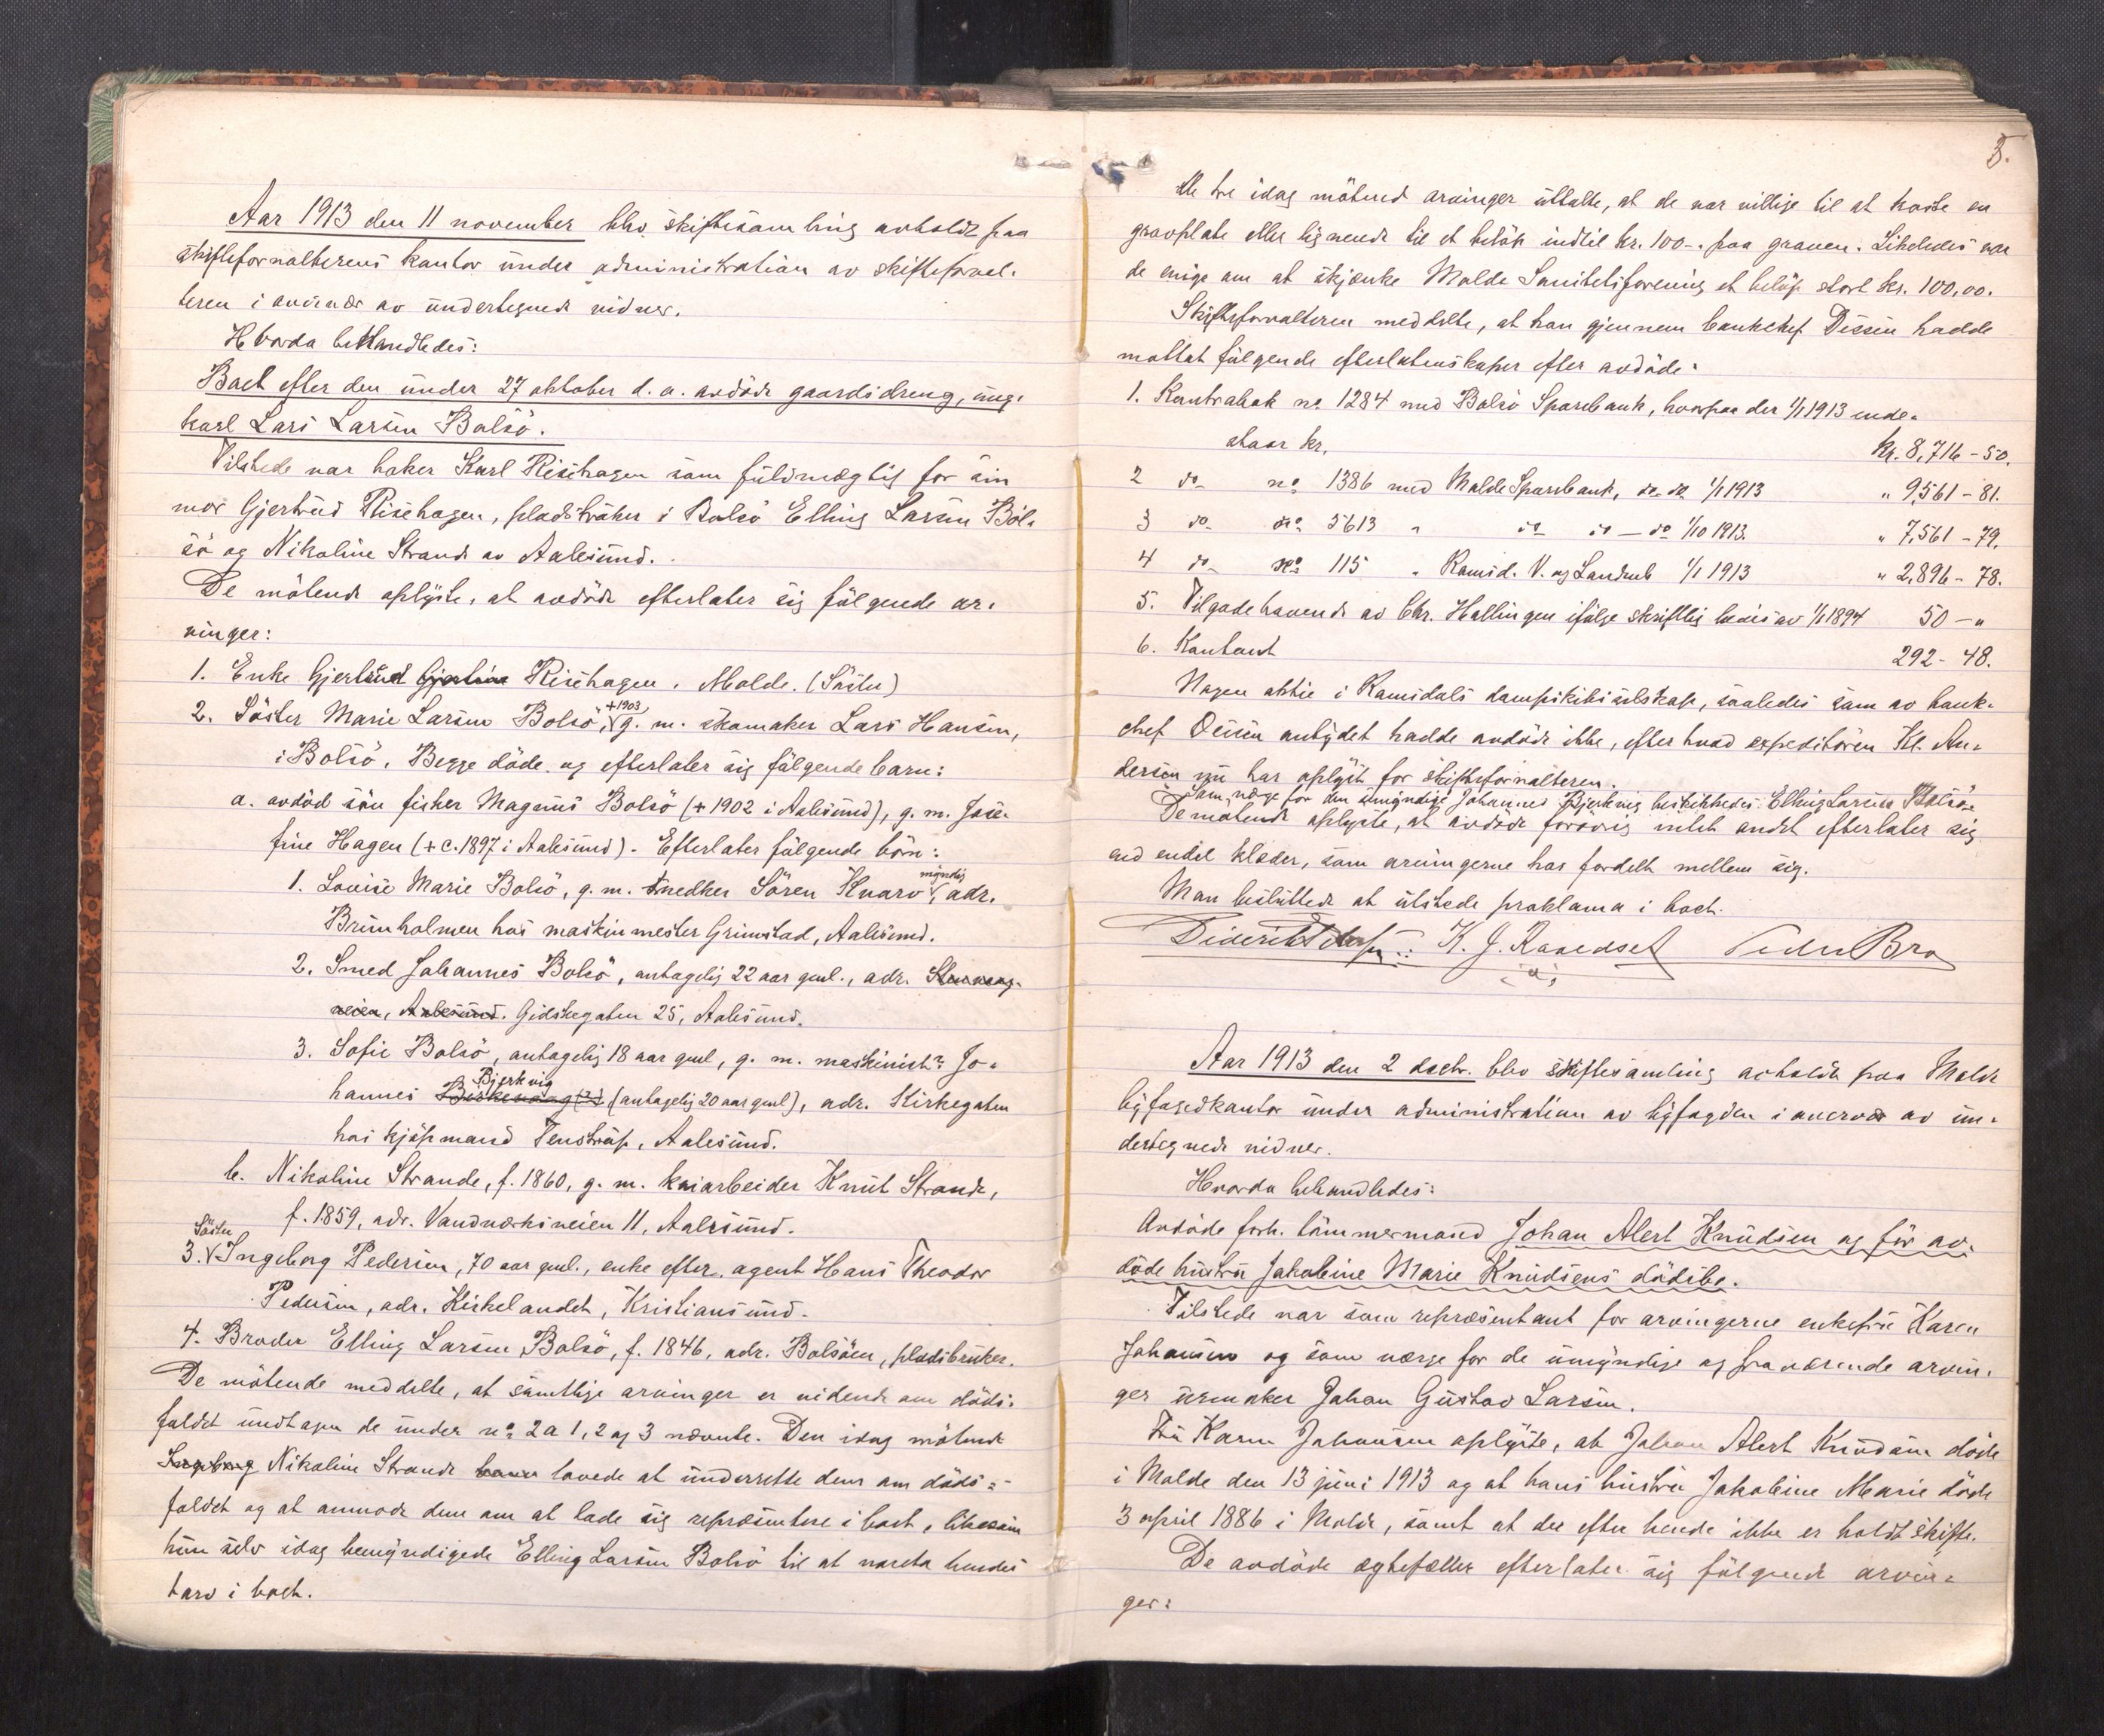 Aar 1913 den 11 november blev skiftesamling avholdt paa
skifteforvalterens kontor under administration av skifteforval-
teren i overvær av undertegnede vidner.
Hvorda behandledes:
Boet efter den under 27 oktober d. a. avdöde gaardsdreng, ung-
karl Lars Larsen Bolsö.
Tilstede var baker Karl Risehagen som fuldmægtig for sin
mor Gjertrud Risehagen, pladsbruker i Bolsö Elling Larsen Bol-
sö og Nikoline Strand av Aalesund.
De mötende oplyste, at avdöde efterlater sig fölgende ar-
vinger:
1. Enke Gjertrud Gjertine Risehagen, Molde. (Söster)
2. Söster Marie Larsen Bolsö, +1903, g. m. skomaker Lars Hansen,
i Bolsö. Begge döde og efterlater sig fölgende barn:
a. avdöd sön fisker Magnus Bolsö (+ 1902 i Aalesund), g. m. Jose-
fine Hagen (+ c. 1897 i Aalesund). Efterlater fölgende börn:
1. Lovise Marie Bolsö, g. m. snedker Sören Knarv, myndig, adr.
Brunholmen hos maskinmester Grimstad, Aalesund.
2. Smed Johannes Bolsö, antagelig 22 aar gml., adr.
veien, Aalesund. Gidskegaten 25, Aalesund.
3. Sofie Bolsö, antagelig 18 aar gml, g. m. maskinist? Jo-
hannes Birkevaag (?) Bjerkvig (antagelig 20 aar gml), adr. Kirkegaten
hos kjöpmand Tenstrup, Aalesund.
b. Nikoline Strande, f. 1860, g. m. kaiarbeider Knut Strande,
f. 1859, adr. Vandverksveien 11, Aalesund.
3. Söster Ingeborg Pedersen, 70 aar gml., enke efter agent Hans Theodor
Pedersen, adr. Kirkelandet, Kristiansund.
4. Broder Elling Larsen Bolsö, f. 1846, adr. Bolsöen, pladsbruker.
De mötende meddelte, at samtlige arvinger er vidende om döds-
faldet undtagen de under no 2a 1, 2 og 3 nævnte. Den idag mötende
Ingeborg Nikoline Strande lovede at underrette dem om döds-
faldet og at anmode dem om at lade sig repræsentere i boet, likesom
hun selv idag bemyndigede Elling Larsen Bolsö til at vareta hendes
tarv i boet.
3.
De tre idag mötende arvinger uttalte, at de var villige til at koste en
gravplate eller lignende til et belöp indtil kr. 100-. paa graven. Likeledes var
de enige om at skjænke Molde Sanitetsforening et belöp stort kr. 100,00.
Skifteforvalteren meddelte, at han gjennem bankchef Dessen hadde
mottat fölgende efterlatenskaper efter avdöde:
1. Kontrabok no 1284 med Bolsö Sparebank, hvorpaa der 1/1 1913 inde-
staar kr. kr. 8,716-50.
2 do no 1386 med Molde Sparebank, do do 1/1 1913 " 9,561-81.
3 do no 5613 " do do - do 1/10 1913. " 7,561-79.
4 do no 115 " Romsd. V. og Landmb 1/1 1913 " 2,896-78.
5. Tilgodehavende av Chr. Hallingen ifölge skriftlig bevis av 1/1 1894 50-"
6. Kontant 292-48.
Nogen aktie i Romsdals dampskibsselskap, saaledes som av bank-
chef Dessen antydet hadde avdöde ikke, efter hvad expeditören Kl. An-
dersen nu har oplyst for skifteforvalteren.
Som verge for den umyndige Johannes Bjerkvig beskikkedes Elling Larsen Bolsö.
De mötende oplyste, at avdöde forövrig intet andet efterlater sig
end endel klæder, som arvingerne har fordelt mellem sig.
Man besluttede at utstede proklama i boet.
K. J. Ravedset Peder Bro
Aar 1913 den 2 decbr. blev skiftesamling avholdt paa Molde
byfogedkontor under administration av byfogden i overvær av un-
dertegnede vidner.
Hvorda behandledes:
Avdöde forh. tömmermand Johan Alert Knudsen og för av-
döde hustru Jakobine Marie Knudsens dödsbo.
Tilstede var som repræsentant for arvingerne enkefru Karen
Johansen og som værge for de umyndige og fraværende arvin-
ger urmaker Johan Gustav Larsen.
Fru Karen Johansen oplyste, at Johan Alert Knudsen döde
i Molde den 13 juni 1913 og at hans hustru Jakobine Marie döde
3 april 1886 i Molde, samt at der efter hende ikke er holdt skifte.
De avdöde egtefæller efterlater sig fölgende arvin-
ger: